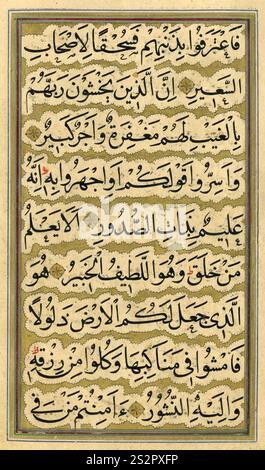 فَاعْتَرَفُوا بِذَنْبِهِمْ فَسُحْقًا لِأَصْحَابِ
السَّعِيرِ إِنَّ الَّذِينَ يَخْشَوْنَ رَبَّهُمْ
بِالْغَيْبِ لَهُمْ مَغْفِرَةٌ وَأَجْرٌ كَبِيرٌ
وَأَسِرُّوا قَوْلَكُمْ أَوِ اجْهَرُوا بِهِ إِنَّهُ
عَلِيمٌ بِذَاتِ الصُّدُورِ أَلَا يَعْلَمُ
مَنْ خَلَقَ وَهُوَ اللَّطِيفُ الْخَبِيرُ هُوَ
الَّذِي جَعَلَ لَكُمُ الْأَرْضَ ذَلُولًا
فَامْشُوا فِي مَنَاكِبِهَا وَكُلُوا مِنْ رِزْقِهِ
وَإِلَيْهِ النُّشُورُ ءَأَمِنْتُمْ مَنْ فِي
alamy
Image ID: 2S2PXFP
www.alamy.com